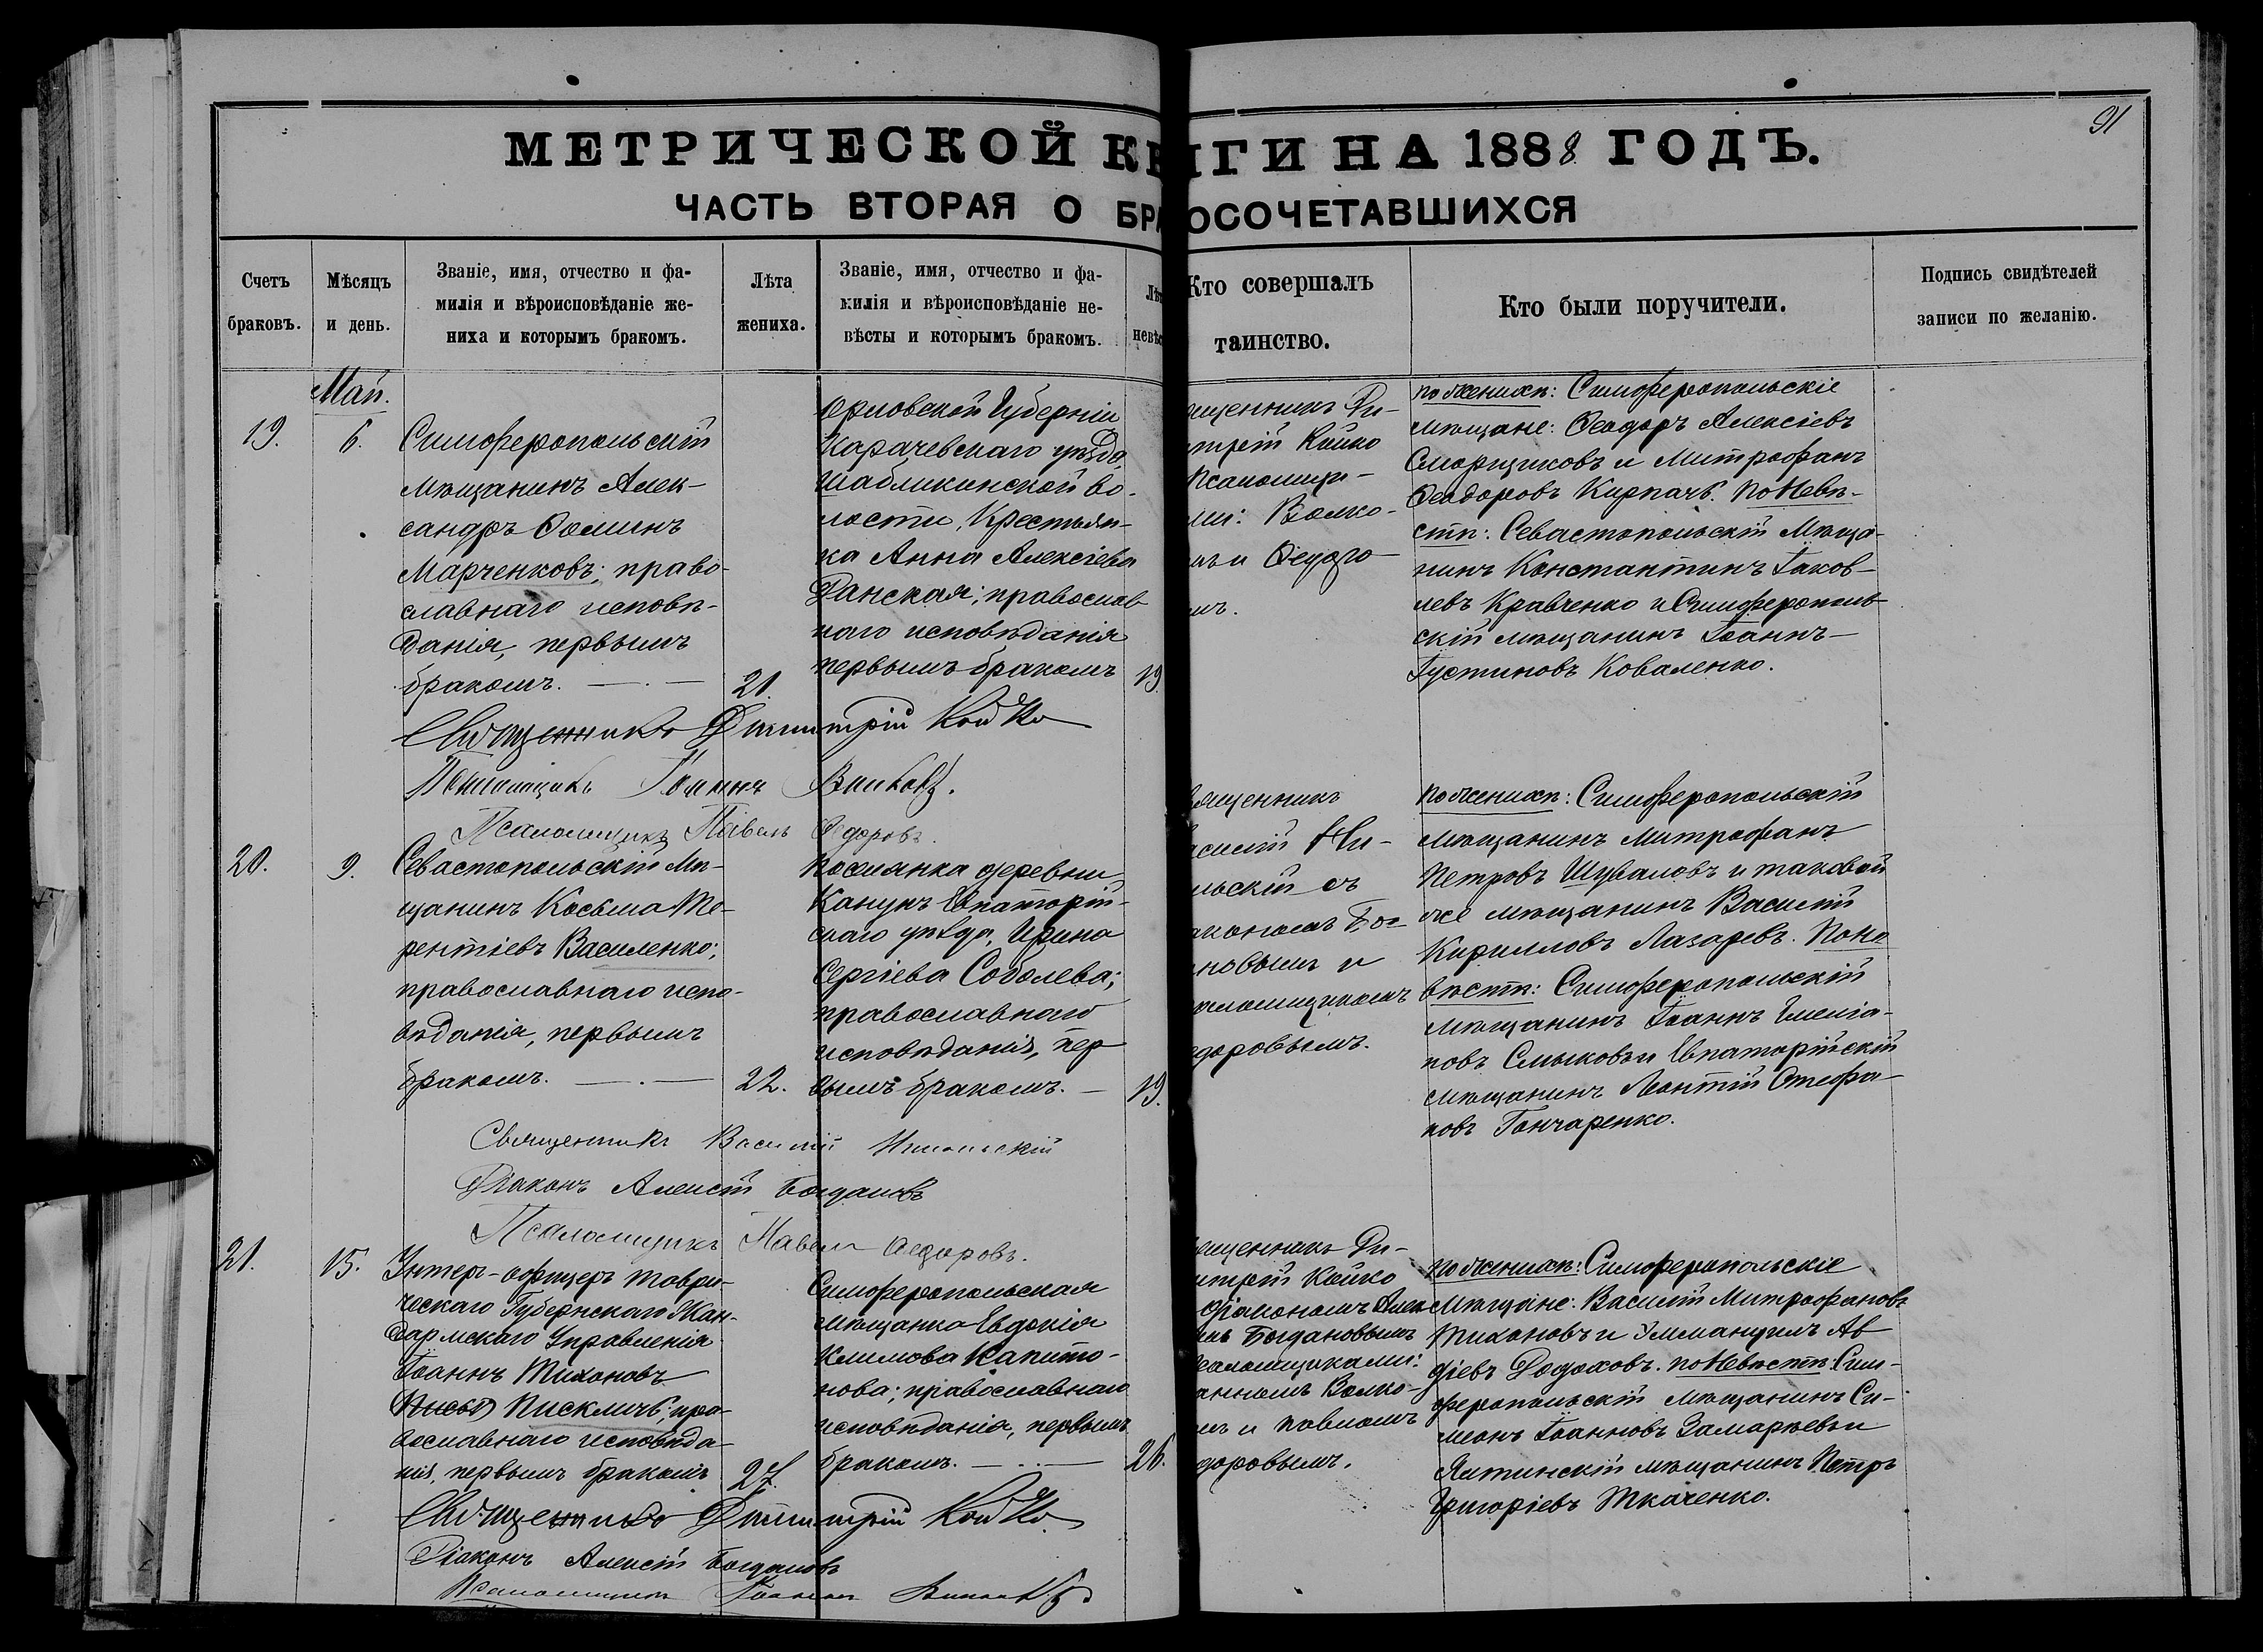 91
МЕТРИЧЕСКОЙ КНИГИ НА 1888 ГОДЪ.
ЧАСТЬ ВТОРАЯ О БРАКОСОЧЕТАВШИХСЯ
Счетъ
браковъ.
Мѣсяцъ
и день.
Званіе, имя, отчество и фа-
милія и вѣроисповѣданіе же-
ниха и которымъ бракомъ.
Лѣта
жениха.
Званіе, имя, отчество и фа-
милія и вѣроисповѣданіе не-
вѣсты и которымъ бракомъ.
Кто совершалъ
таинство.
Кто были поручители.
Подпись свидѣтелей
записи по желанію.
Май.
19.
6.
Симферопольскій
мѣщанинъ Алек-
сандръ Фоминъ
Марченковъ; право-
славнаго исповѣ-
данія, первымъ
бракомъ.
21.
Орловской Губерніи
Карачевскаго уѣзда,
Шабликинской во-
лости, Крестьян-
ка Анна Алексіева
Данская; православ-
наго исповѣданія
первымъ бракомъ
19.
щенникъ Ди-
трій Койко
Псаломщи-
ми: Волко-
ъ и Ѳедоро-
мъ.
по женихѣ: Симферопольскіе
мѣщане: Ѳеодоръ Алексіевъ
Сморщиковъ и Митрофанъ
Ѳеодоровъ Кирпачъ. По Невѣ-
стѣ: Севастопольскій Мѣща-
нинъ Константинъ Іаков-
левъ Кравченко и Симферополь-
скій мѣщанинъ Іоаннъ
Іустиновъ Коваленко.
Священникъ Димитрій Койко
Псаломщикъ Іоаннъ Волковъ.
Псаломщикъ Павелъ Ѳедоровъ.
20.
9.
Севастопольскій Мѣ-
щанинъ Косьма Те-
рентіевъ Василенко;
православнаго испо-
вѣданія, первымъ
бракомъ.
22.
поселянка деревни
Канунъ Евпаторій-
скаго уѣзда, Ирина
Сергіева Соболева;
православнаго
исповѣданія, пер
вымъ бракомъ.
19.
щенникъ
асилій Ни-
льскій съ
акономъ Бог
новымъ и
аломщикомъ
доровымъ.
по женихѣ: Симферопольскій
мѣщанинъ Митрофанъ
Петровъ Шуваловъ и таковой
же мѣщанинъ Василій
Кирилловъ Лазаревъ. По не
вѣстѣ: Симферопольскій
мѣщанинъ Іоаннъ Емеліа-
новъ Смыковъ и Евпаторійскій
мѣщанинъ Леонтій Стефа-
новъ Гончаренко.
Священникъ Василій Никольскій
Діаконъ Алексій Богдановъ
Псаломщикъ Павелъ Ѳедоровъ.
21.
15.
Унтеръ-офицеръ Таври-
ческаго Губернскаго Жан-
дармскаго Управленія
Іоаннъ Тихоновъ
Пискличъ; пра-
вославнаго исповѣда-
нія, первымъ бракомъ
27.
Симферопольская
мѣщанка Евдокія
Климова Капито-
нова; православнаго
исповѣданія, первымъ
бракомъ.
26.
щенникъ Ди-
итрій Койко
діакономъ Алек
мъ Богдановымъ
саломщиками:
анномъ Волко-
мъ и Павломъ
доровымъ.
по женихѣ: Симферопольскіе
мѣщане: Василій Митрофановъ
Тихоновъ и Эммануилъ Ав
діевъ Додоховъ. по Невѣстѣ: Сим-
феропольскій мѣщанинъ Си-
меонъ Іоанновъ Замаряевъ и
Ялтинскій мѣщанинъ Петръ
Григоріевъ Ткаченко.
Священникъ Димитрій Койко
Діаконъ Алексій Богдановъ
Псаломщикъ Іоаннъ Волковъ